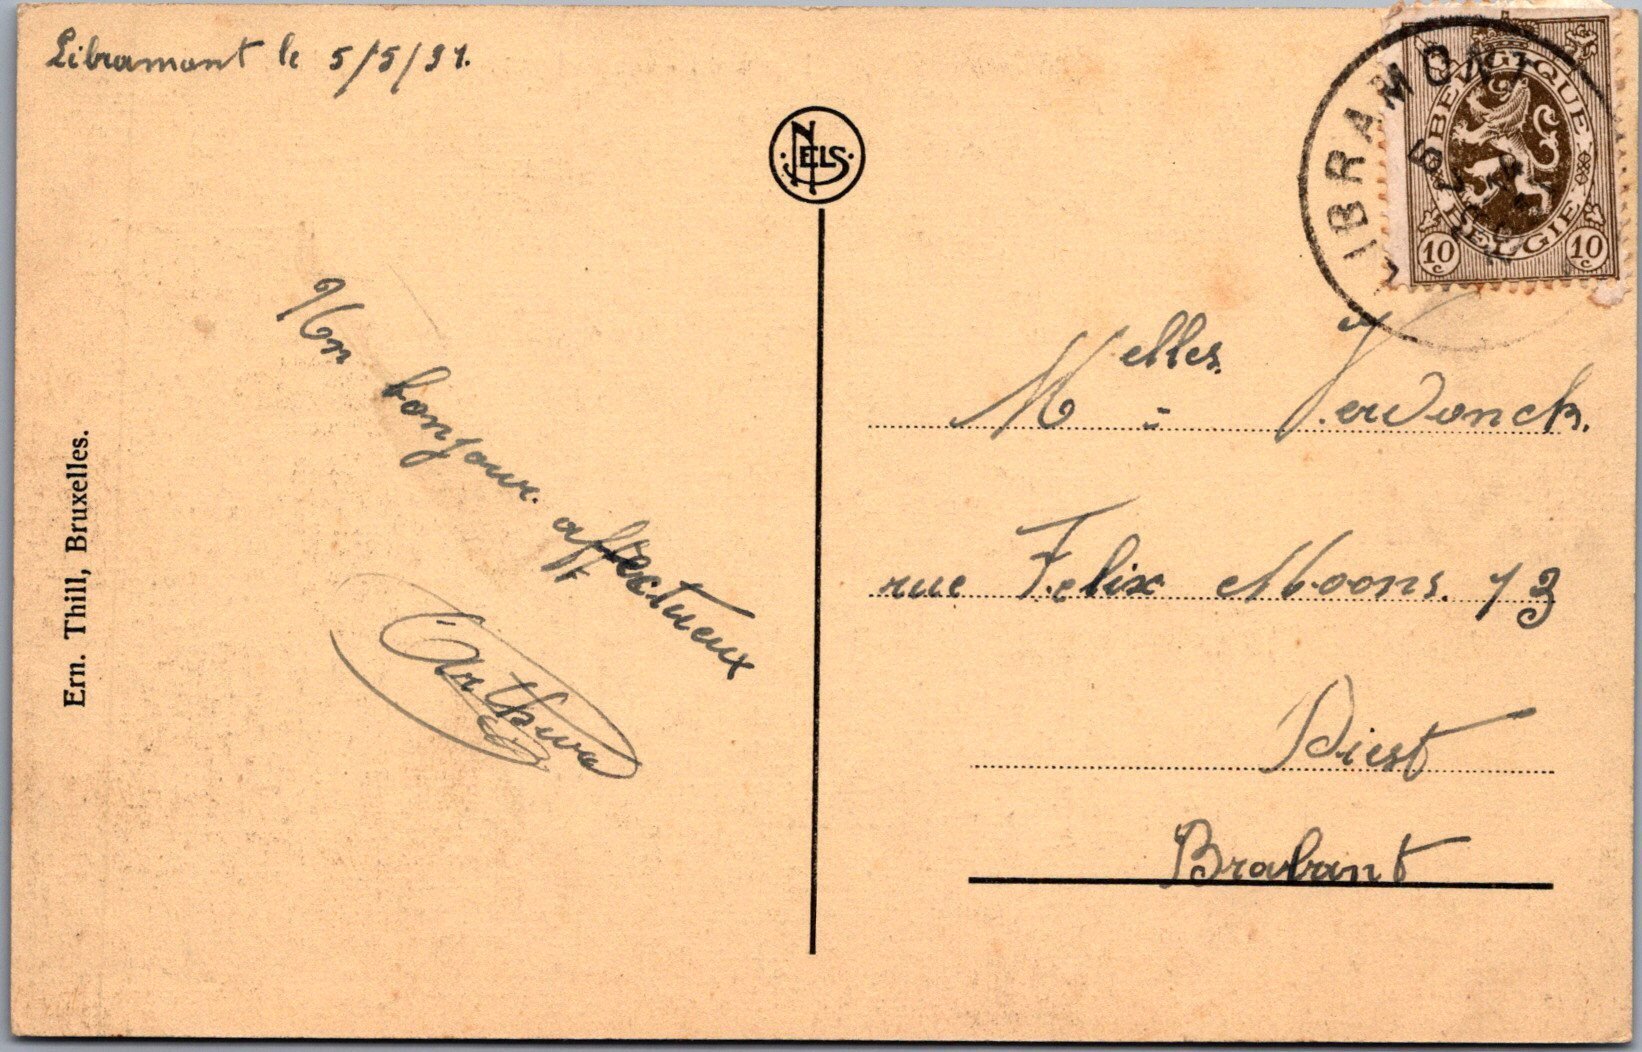 Libramont le 5/5/31.
Un bonjour. affectueux
Arthur
Ern. Thill, Bruxelles.
NELS
LIBRAMONT
BELGIQUE
BELGIE
10 c
10 c
Melles. Verdonck.
rue Felix Moons. 13
Diest
Brabant